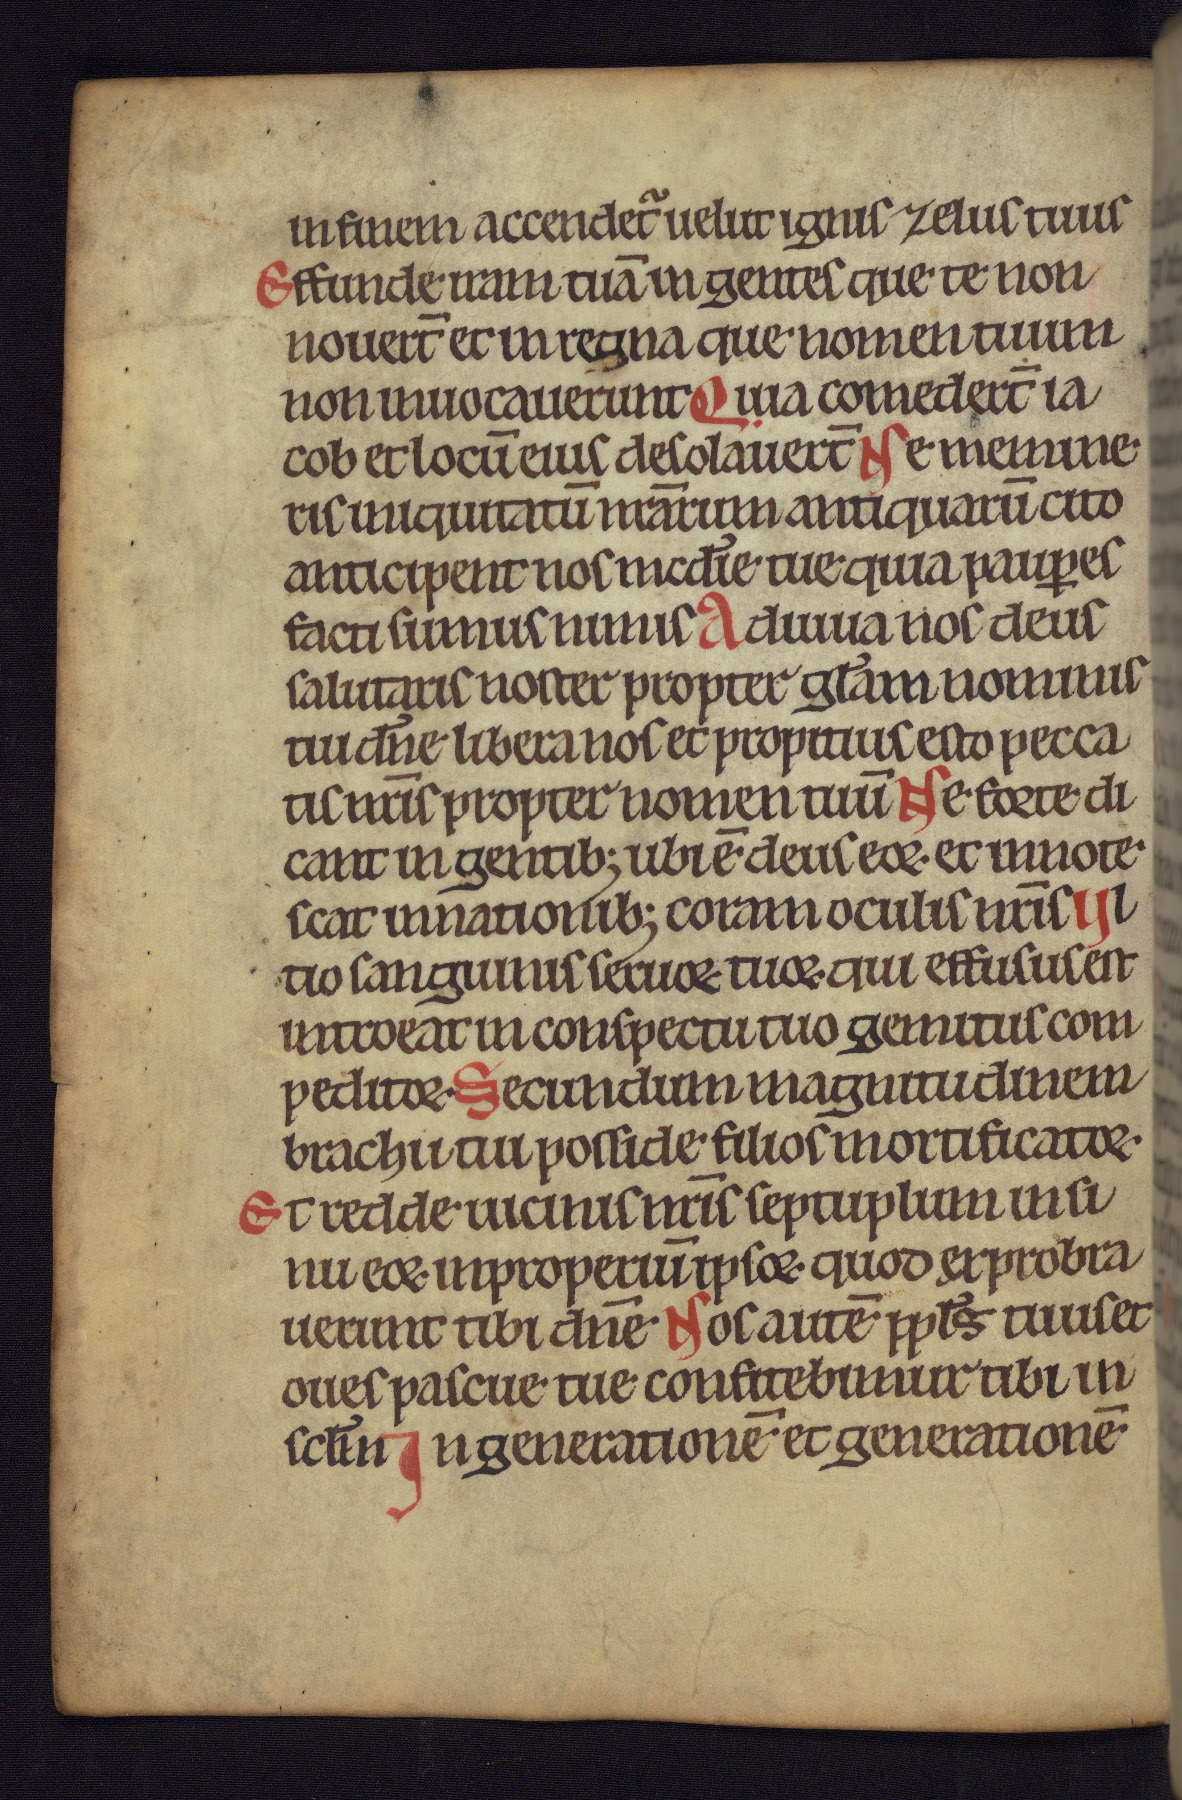 in finem accendet᷑ uelut ignis zelus tuus
Effunde iram tuā in gentes que te non
nouerт̄ et in regna que nomen tuum
non inuocauerunt Quia comedert̄ ia
cob et locū eius desolauert̄ Ne memine
ris iniquitatū nrārum antiquarū cito
anticipent nos mcd̓ie tue quia paup̱es
facti sumus nimis Adiuua nos deus
salutaris noster propter gl̓am nominis
tui dn̄e libera nos et propitius esto pecca
tis nr̄is propter nomen tuū Ne forte di
cant in gentib; ubi ē deus eoꝝ et innote
scat in nationib; coram oculis nr̄is Ul
tio sanguinis seruoꝝ tuoꝝ qui effusus est
introeat in conspectu tuo gemitus com
peditoꝝ Secundum magnitudinem
brachii tui posside filios mortificatoꝝ
Et redde uicinis nr̄is septuplum in si
nu eoꝝ inproperiū ipsoꝝ quod exprobra
uerunt tibi dn̄e Nos autē ppl̓s tuus et
oues pascue tue confitebimur tibi in
scl̓m In generationē et generationē